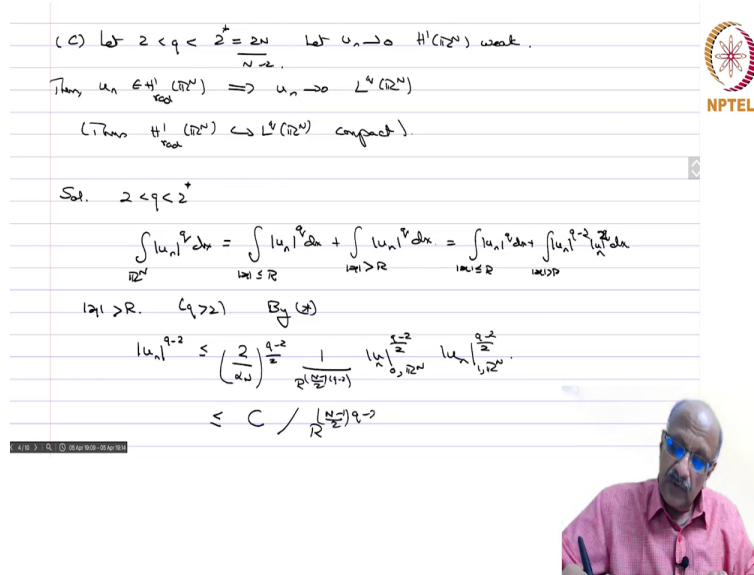 (C) Let 2 < q < 2* = 2N/(N-2). Let uₙ ⇀ 0 H¹(ℝᴺ) weak.
Then, uₙ ∈ H¹_rad(ℝᴺ) ⟹ uₙ → 0 L^q(ℝᴺ)
(Thus H¹_rad(ℝᴺ) ↪ L^q(ℝᴺ) compact).
NPTEL
Sol. 2 < q < 2*
∫_{ℝᴺ} |uₙ|^q dx = ∫_{|x|≤R} |uₙ|^q dx + ∫_{|x|>R} |uₙ|^q dx. = ∫_{|x|≤R} |uₙ|^q dx + ∫_{|x|>R} |uₙ|^{q-2} |uₙ|² dx
|x| > R. (q>2) By (*)
|uₙ|^{q-2} ≤ (2/αN)^{(q-2)/2} 1/R^{((N-1)/2)(q-2)} |uₙ|_{0,ℝᴺ}^{(q-2)/2} |uₙ|_{1,ℝᴺ}^{(q-2)/2}.
≤ C / R^{((N-1)/2) q-2}
4 / 10 05 Apr 19:09 - 05 Apr 19:14